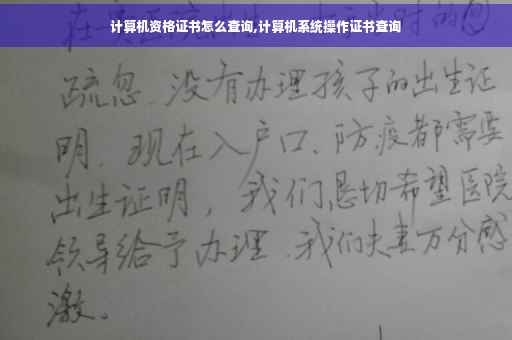 计算机资格证书怎么查询,计算机系统操作证书查询
疏忽.没有办理孩子的出生证
明.现在入户口、防疫都需要
出生证明，我们恳切希望医院
领导给予办理.我们夫妻万分感
激。